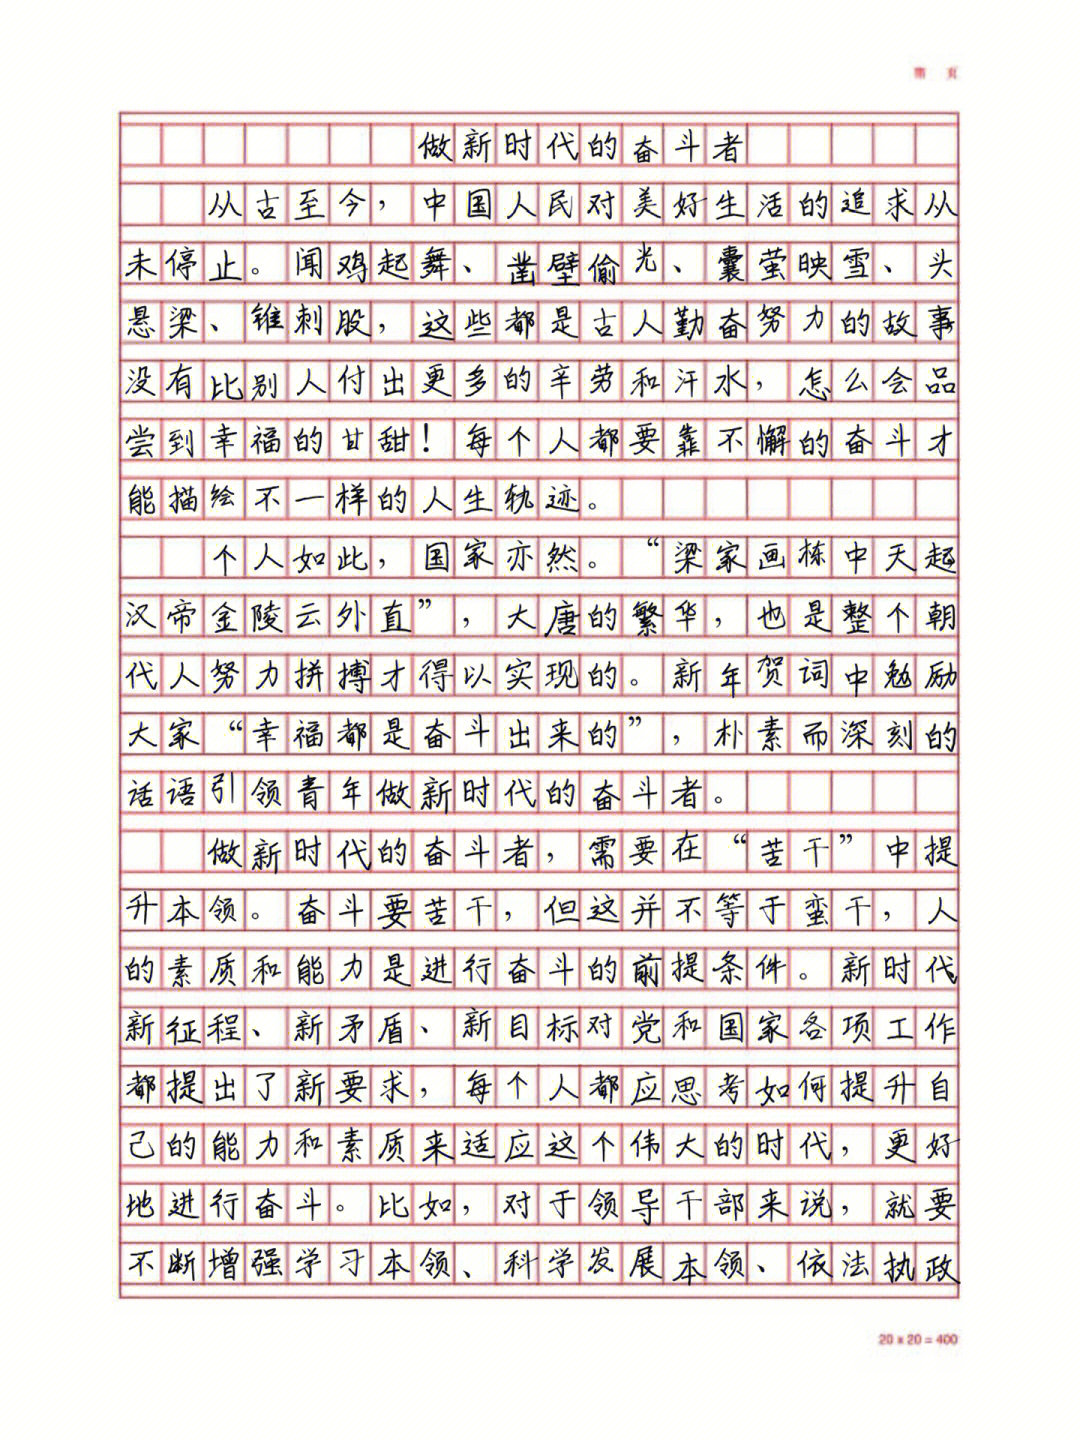 第 页
做新时代的奋斗者
从古至今，中国人民对美好生活的追求从
未停止。闻鸡起舞、凿壁偷光、囊萤映雪、头
悬梁、锥刺股，这些都是古人勤奋努力的故事
没有比别人付出更多的辛劳和汗水，怎么会品
尝到幸福的甘甜！每个人都要靠不懈的奋斗才
能描绘不一样的人生轨迹。
个人如此，国家亦然。“梁家画栋中天起
汉帝金陵云外直”，大唐的繁华，也是整个朝
代人努力拼搏才得以实现的。新年贺词中勉励
大家“幸福都是奋斗出来的”，朴素而深刻的
话语引领青年做新时代的奋斗者。
做新时代的奋斗者，需要在“苦干”中提
升本领。奋斗要苦干，但这并不等于蛮干，人
的素质和能力是进行奋斗的前提条件。新时代
新征程、新矛盾、新目标对党和国家各项工作
都提出了新要求，每个人都应思考如何提升自
己的能力和素质来适应这个伟大的时代，更好
地进行奋斗。比如，对于领导干部来说，就要
不断增强学习本领、科学发展本领、依法执政
20 x 20 = 400